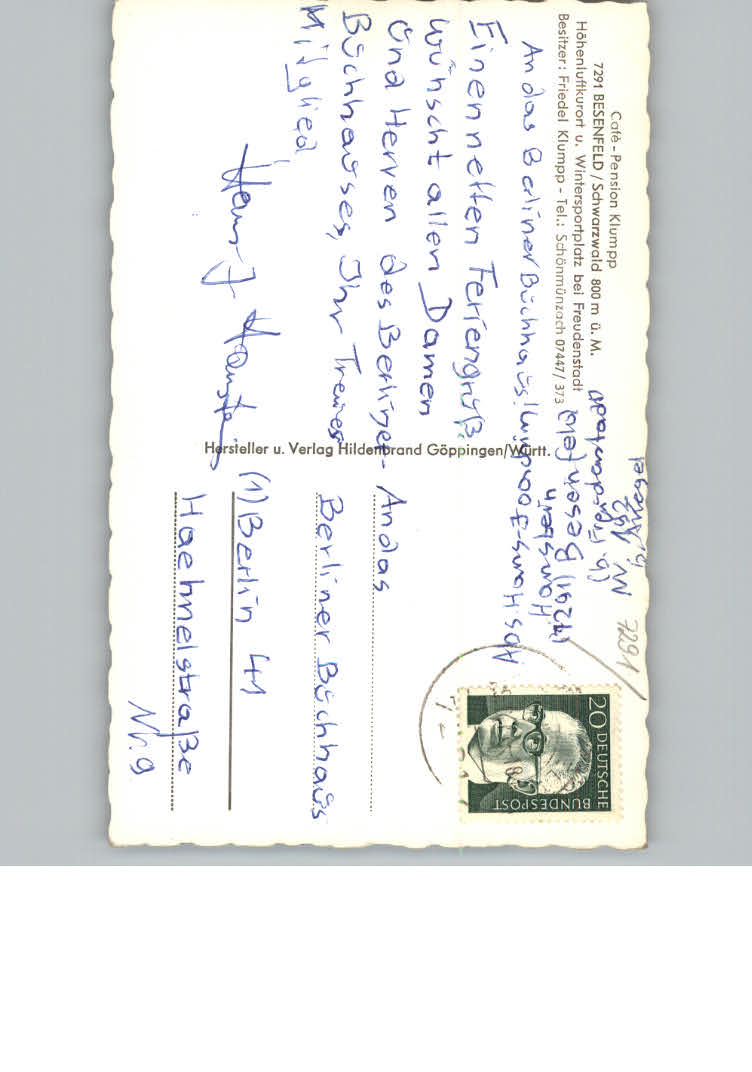 Café-Pension Klumpp
7291 BESENFELD / Schwarzwald 800 m ü. M.
Höhenluftkurort u. Wintersportplatz bei Freudenstadt
Besitzer: Friedel Klumpp - Tel.: Schönmünzach 07447/ 373
An das Berliner Büchhaüs!
Einen netten Feriengrüß
wünscht allen Damen
ünd Herren des Berliner-
Büchhaüses, Ihr Treües
Mitglied,
Haus-J
Hersteller u. Verlag Hildenbrand Göppingen/Württ.
Abs: Hans-Joachim
(7291) Besenfeld
(b. Freüdenstadt)
7291
20 DEUTSCHE
BUNDESPOST
An das
Berliner Büchhaüs
(1) Berlin 41
Haehnelstraße
Nr. 9